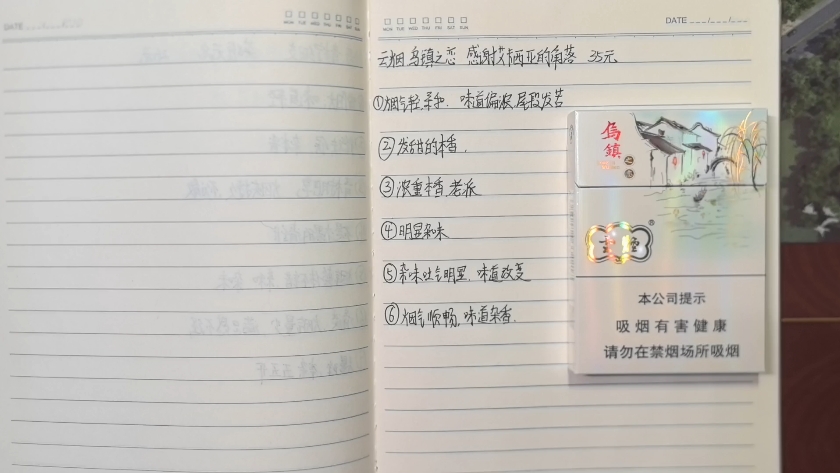 DATE
MON TUE WED THU FRI SAT SUN
MON TUE WED THU FRI SAT SUN
DATE
云烟 乌镇之恋 感谢艾希西亚的角落 35元
①烟气轻,柔和. 味道偏淡,尾段发苦
②发甜的本香.
③浓重本香,老派
④明显杂味
⑤杂味吐气明显, 味道改变
⑥烟气顺畅,味道杂香.
烏鎮
之恋
云烟
®
本公司提示
吸烟有害健康
请勿在禁烟场所吸烟